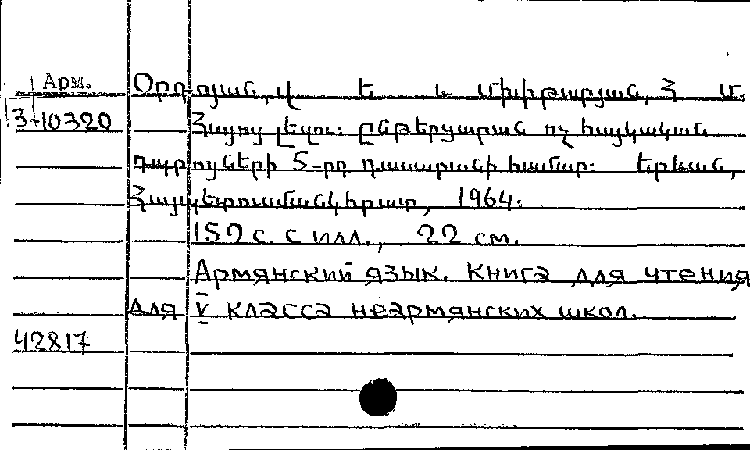 Арм. Օրդոյան, Վ. Ե. և Մխիթարյան, Հ. Մ.
3-10320 Հայոց լեզու: Ընթերցարան ոչ հայկական
դպրոցների 5-րդ դասարանի համար: Երևան,
Հայպետուսմանկհրատ, 1964.
152 с. с илл., 22 см.
Армянский язык. Книга для чтения
для V класса неармянских школ.
42817